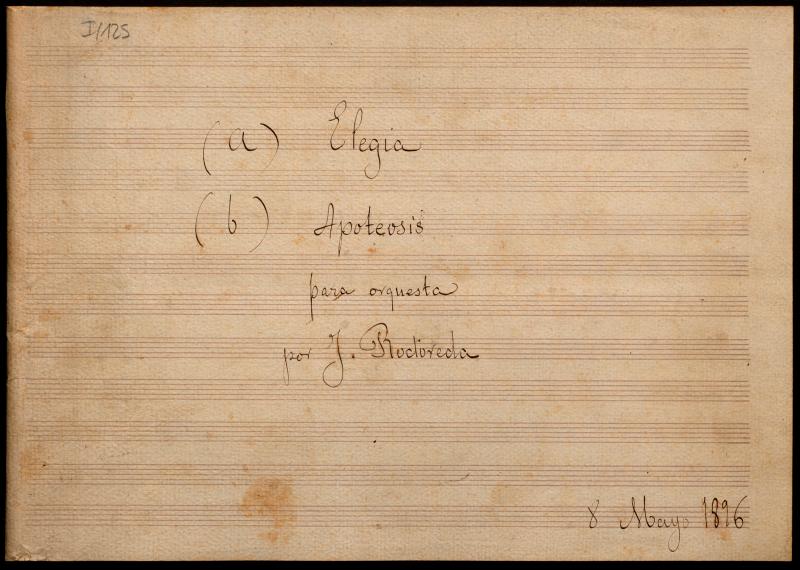 I/125
(a) Elegia
(b) Apoteosis
para orquesta
por J. Rodoreda
8 Mayo 1896